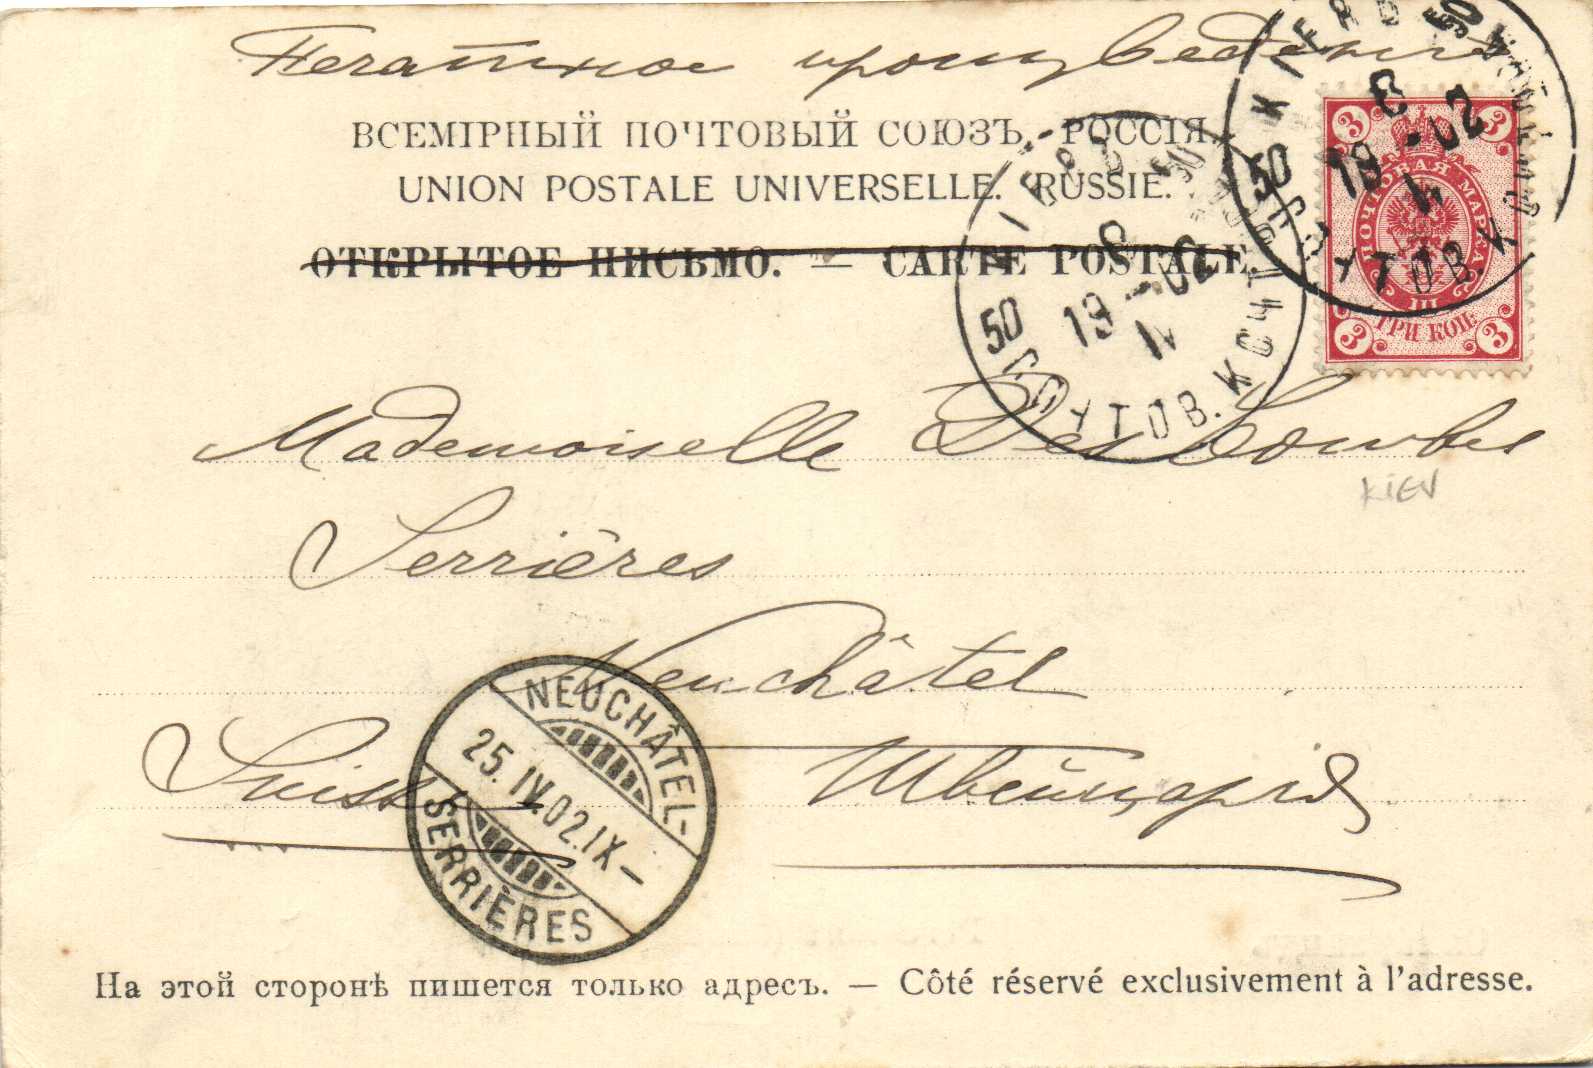 Печатное произведенiе
ВСЕМІРНЫЙ ПОЧТОВЫЙ СОЮЗЪ. РОССІЯ.
UNION POSTALE UNIVERSELLE. RUSSIE.
ОТКРЫТОЕ ПИСЬМО. — CARTE POSTALE.
3 3
ПОЧТОВАЯ МАРКА
III
ТРИ КОП.
3 3
KIEV
50
8
19 - 02
IV
50
8
19 - 02
IV
Mademoiselle
KIEV
Serrières
Neuchâtel
Suisse Швейцарiя
NEUCHÂTEL-
25. IV. 02. IX –
SERRIÈRES
На этой сторонѣ пишется только адресъ. — Côté réservé exclusivement à l'adresse.